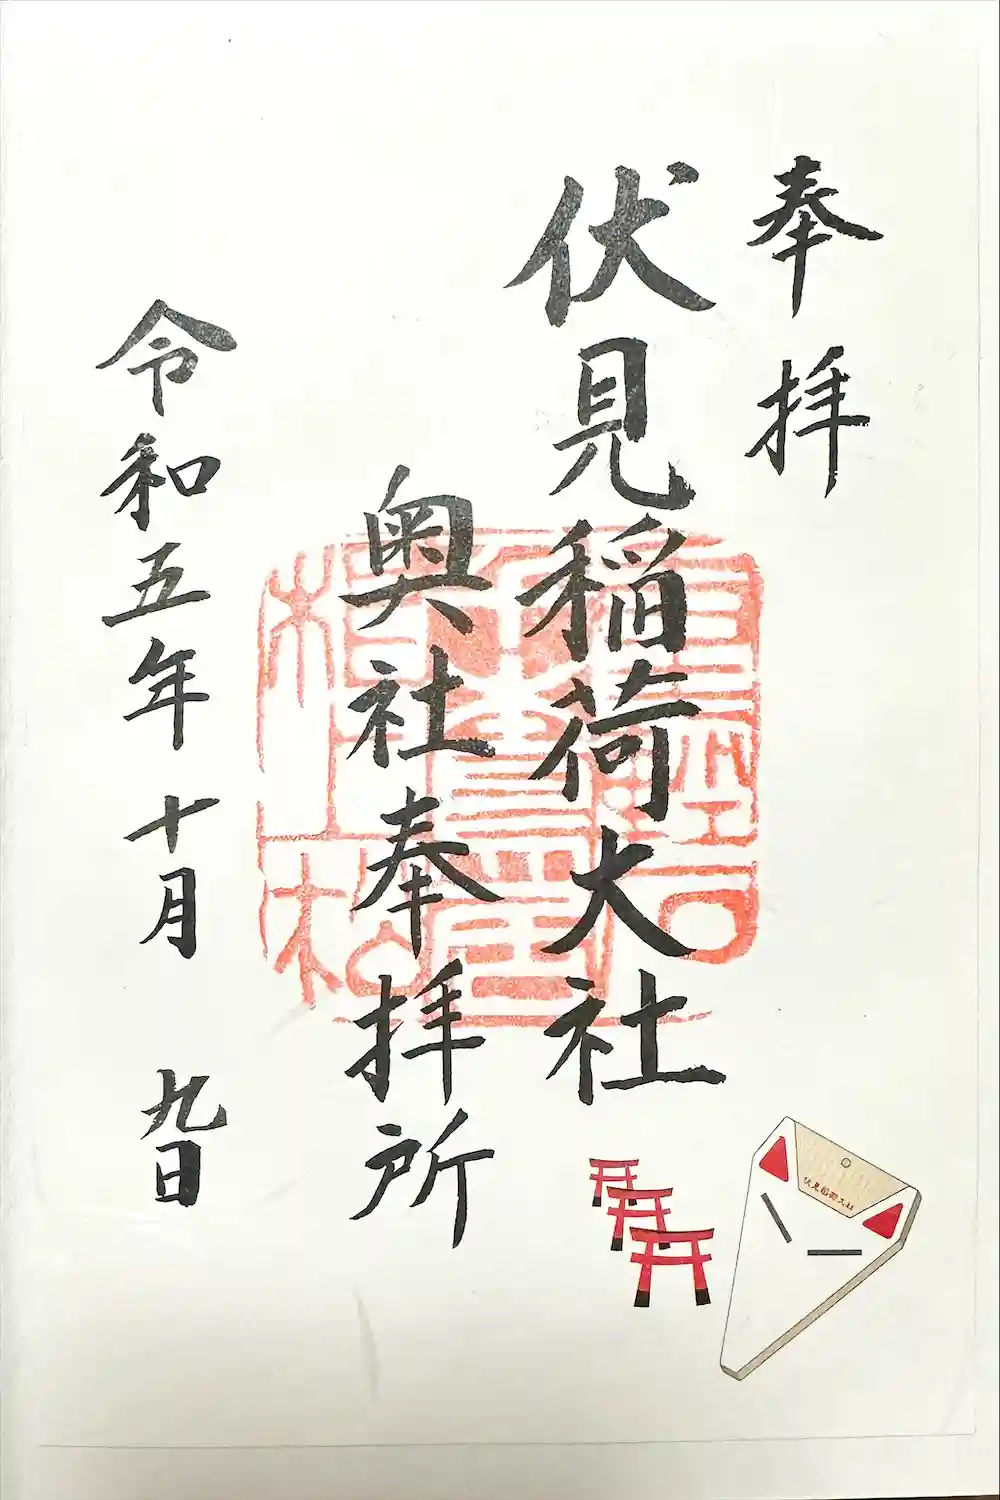 奉拝
伏見稲荷大社
奥社奉拝所
令和五年十月九日
伏見稲荷大社